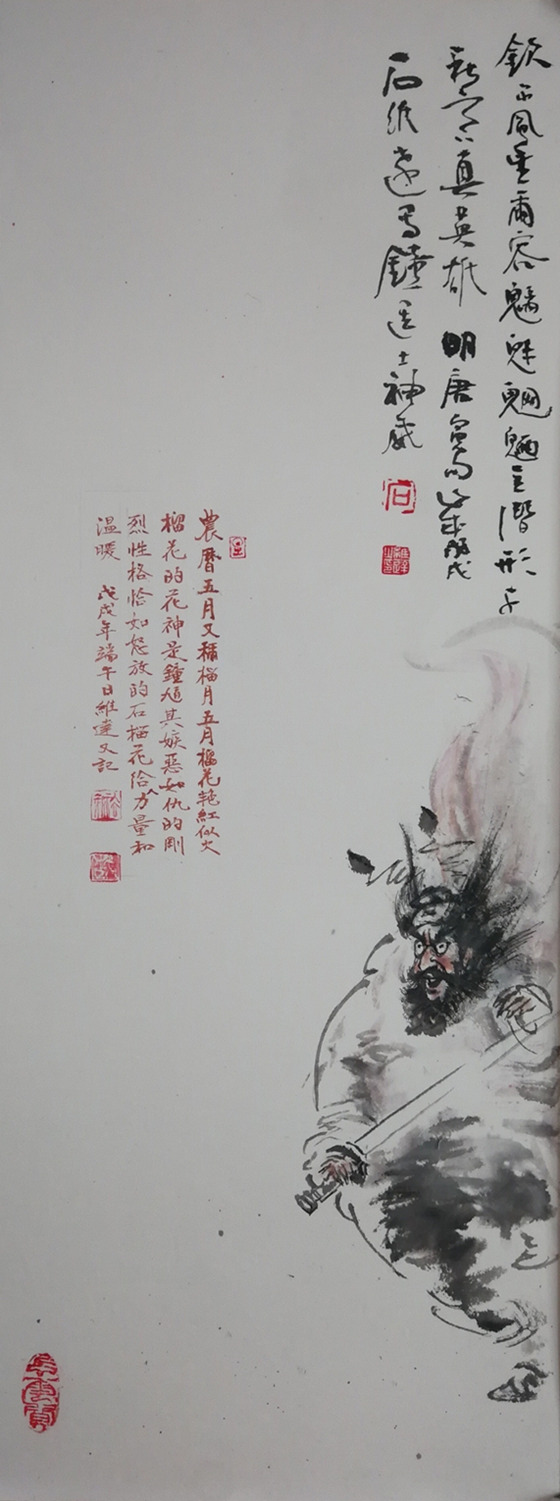 爾容魑魅魍魎立潛形千
真英雄 明唐寅句 歲戊戌
石維達寫鍾進士神威
石
農曆五月又稱榴月五月榴花艷紅似火
榴花的花神是鐘馗其嫉惡如仇的剛
烈性格恰如怒放的石榴花給人力量和
溫暖 戊戌年端午日維達又記